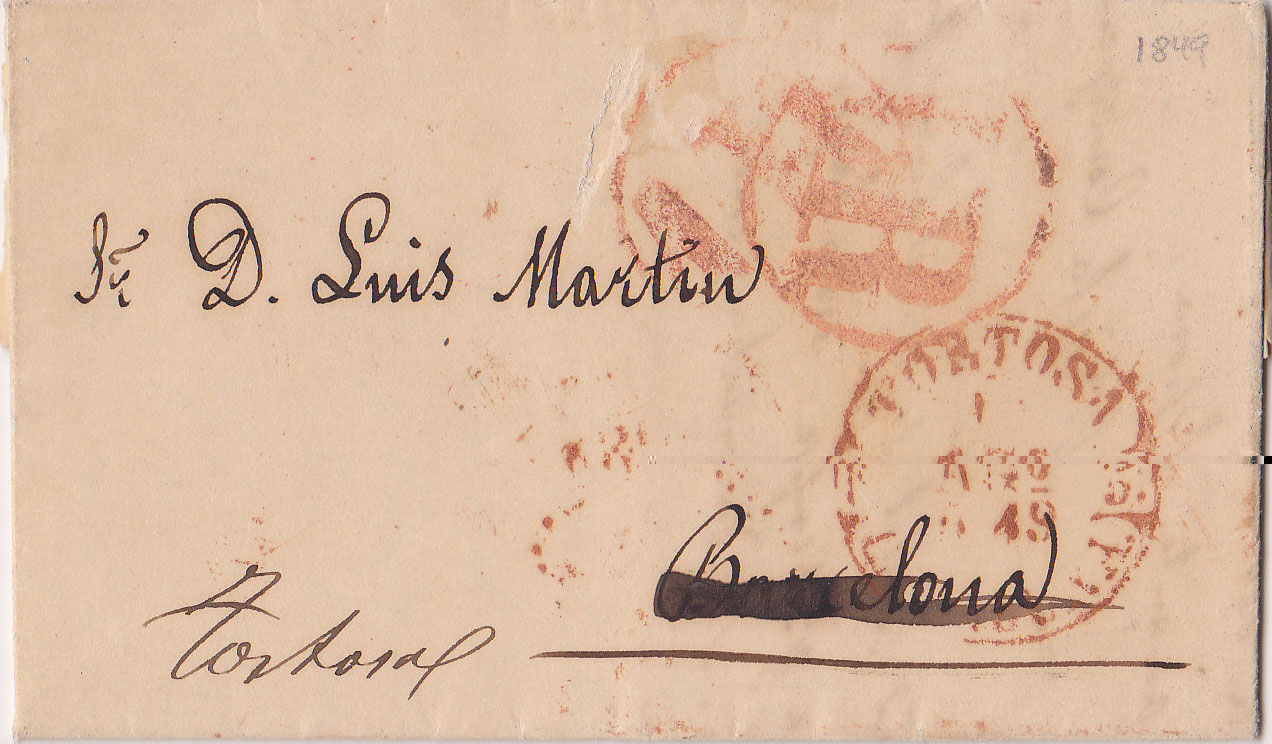 1849
Sr. D. Luis Martin
R
TORTOSA
1
49
Barcelona
Tortosa